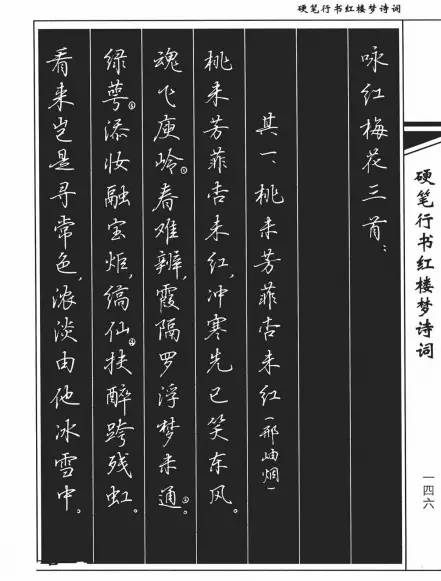 硬笔行书红楼梦诗词
硬笔行书红楼梦诗词
一四六
咏红梅花三首：
其一、桃未芳菲杏未红（邢岫烟）
桃未芳菲杏未红，冲寒先已笑东风。
魂飞庾岭①春难辨，霞隔罗浮梦未通②。
绿萼③添妆融宝炬，缟仙④扶醉跨残虹。
看来岂是寻常色，浓淡由他冰雪中。